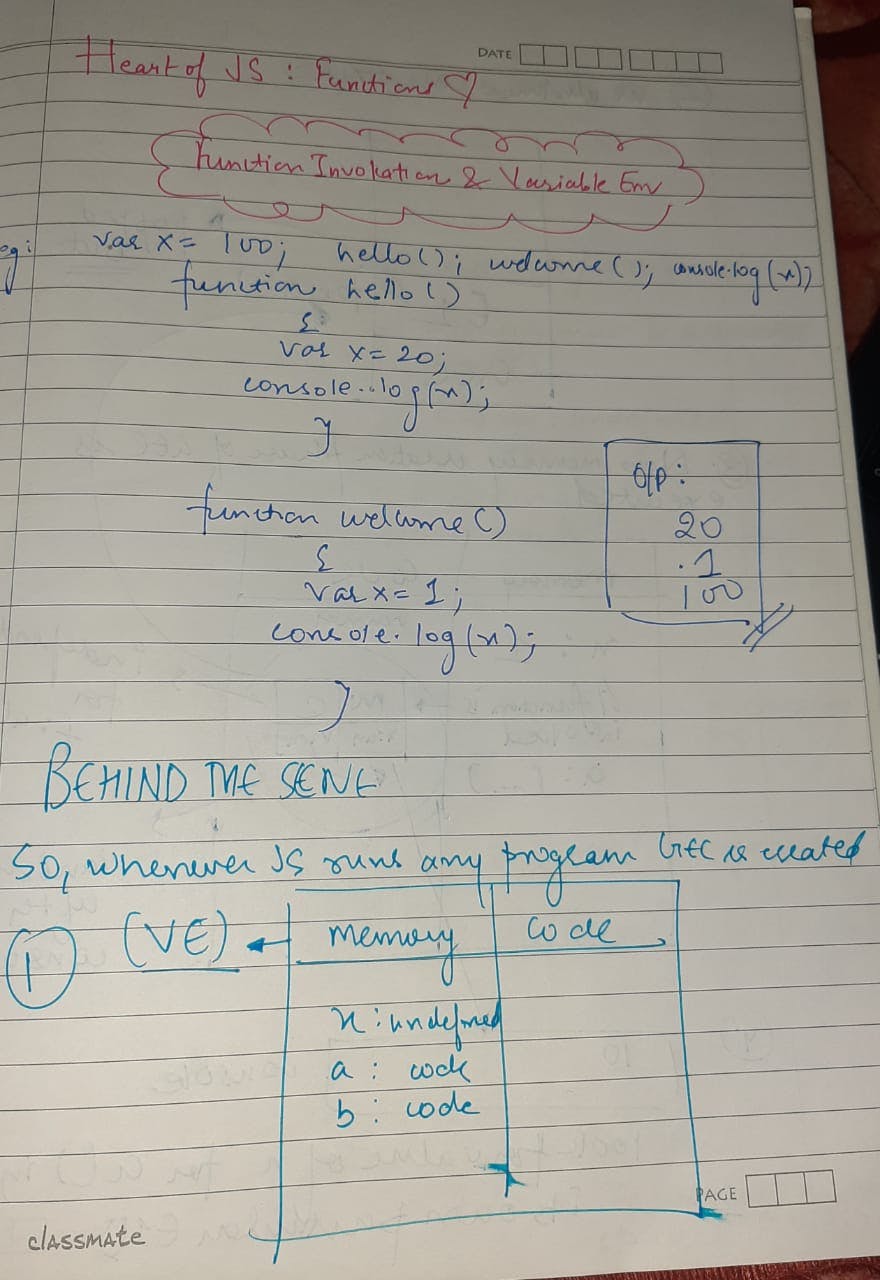 DATE
Heart of JS : Functions ♡
Function Invokation & Variable Env
eg:
var x = 100; hello(); welcome(); console.log(x))
function hello()
{
var x = 20;
console..log(x);
}
O/P :
20
.1
100
function welcome()
{
var x = 1;
console.log(x);
}
BEHIND THE SENE
So, whenever JS runs any program GEC is created
① (VE) ← memory code
x : undefined
a : code
b : code
PAGE
classmate